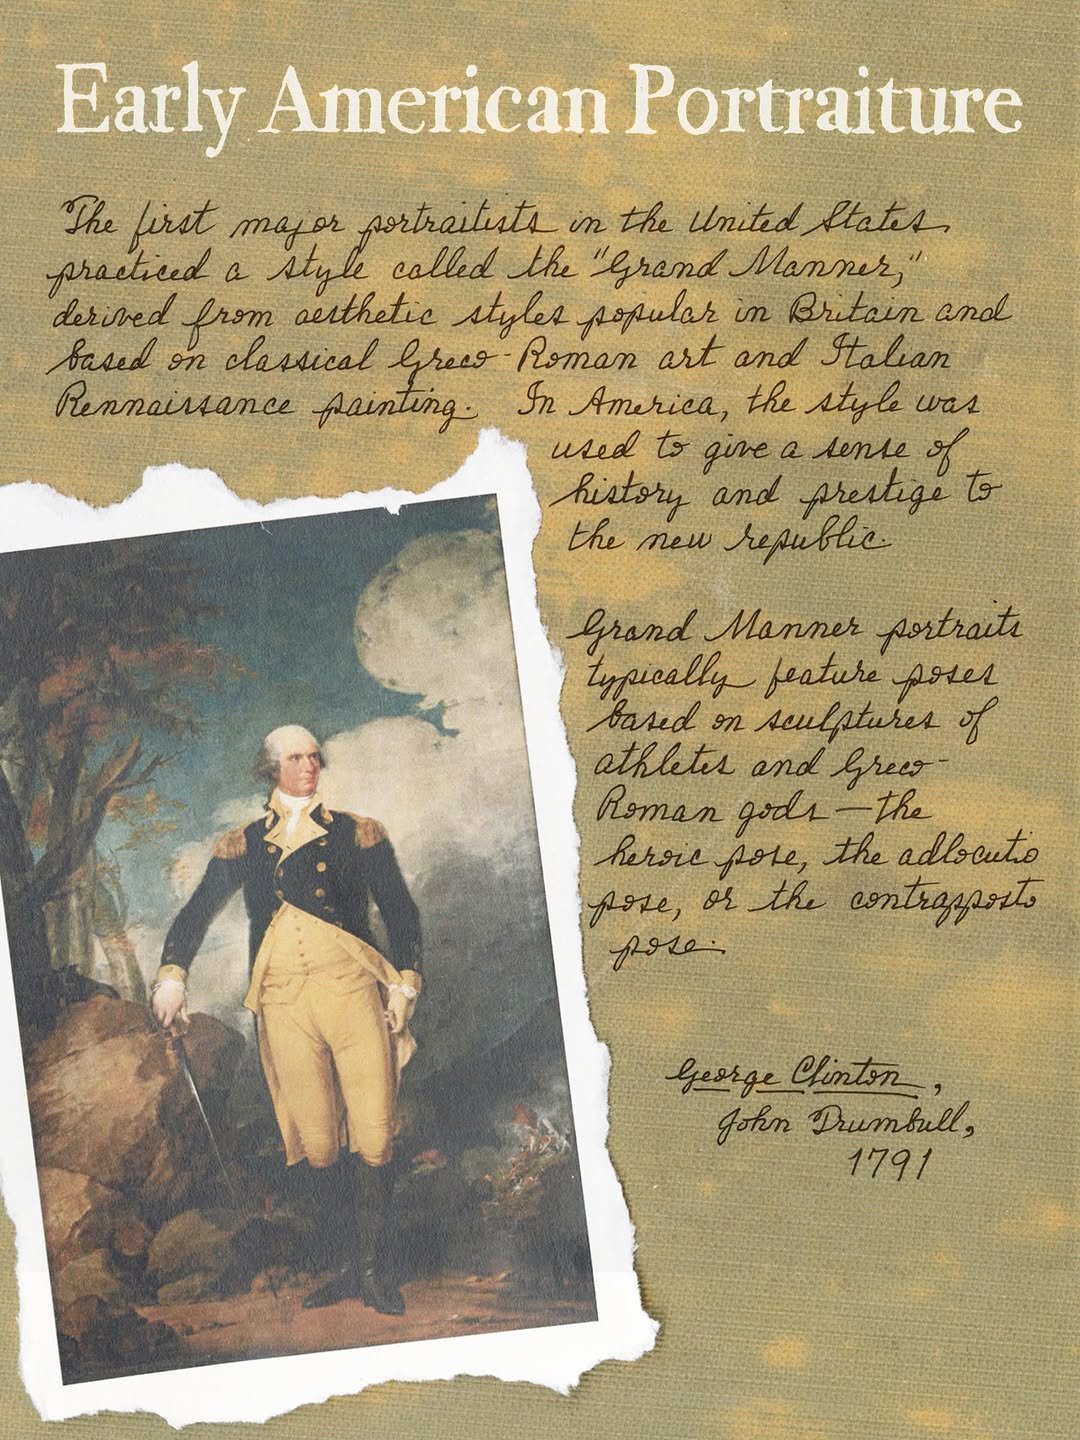 Early American Portraiture
The first major portraitists in the United States
practiced a style called the "Grand Manner,"
derived from aesthetic styles popular in Britain and
based on classical Greco-Roman art and Italian
Rennaissance painting. In America, the style was
used to give a sense of
history and prestige to
the new republic.
Grand Manner portraits
typically feature poses
based on sculptures of
athletes and Greco-
Roman gods—the
heroic pose, the adlocutio
pose, or the contrapposto
pose.
George Clinton,
John Trumbull,
1791